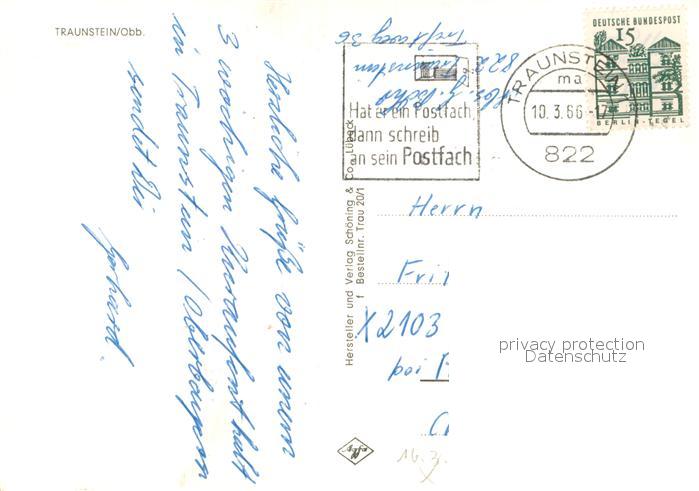 TRAUNSTEIN/Obb.
Herzliche Grüße von einem
3 wöchigen Kuraufenthalt
in Traunstein / Oberbayern
sendet Dir
Gerhard.
822 Traunstein
Hat er ein Postfach,
dann schreib
an sein Postfach
TRAUNSTEIN
ma
10.3.66
822
DEUTSCHE BUNDESPOST
15
BERLIN-TEGEL
Hersteller und Verlag Schöning & Co., Lübeck
f Bestellnr. Trau 20/1
Herrn
X2103
bei
Agfa
16.3.
privacy protection
Datenschutz